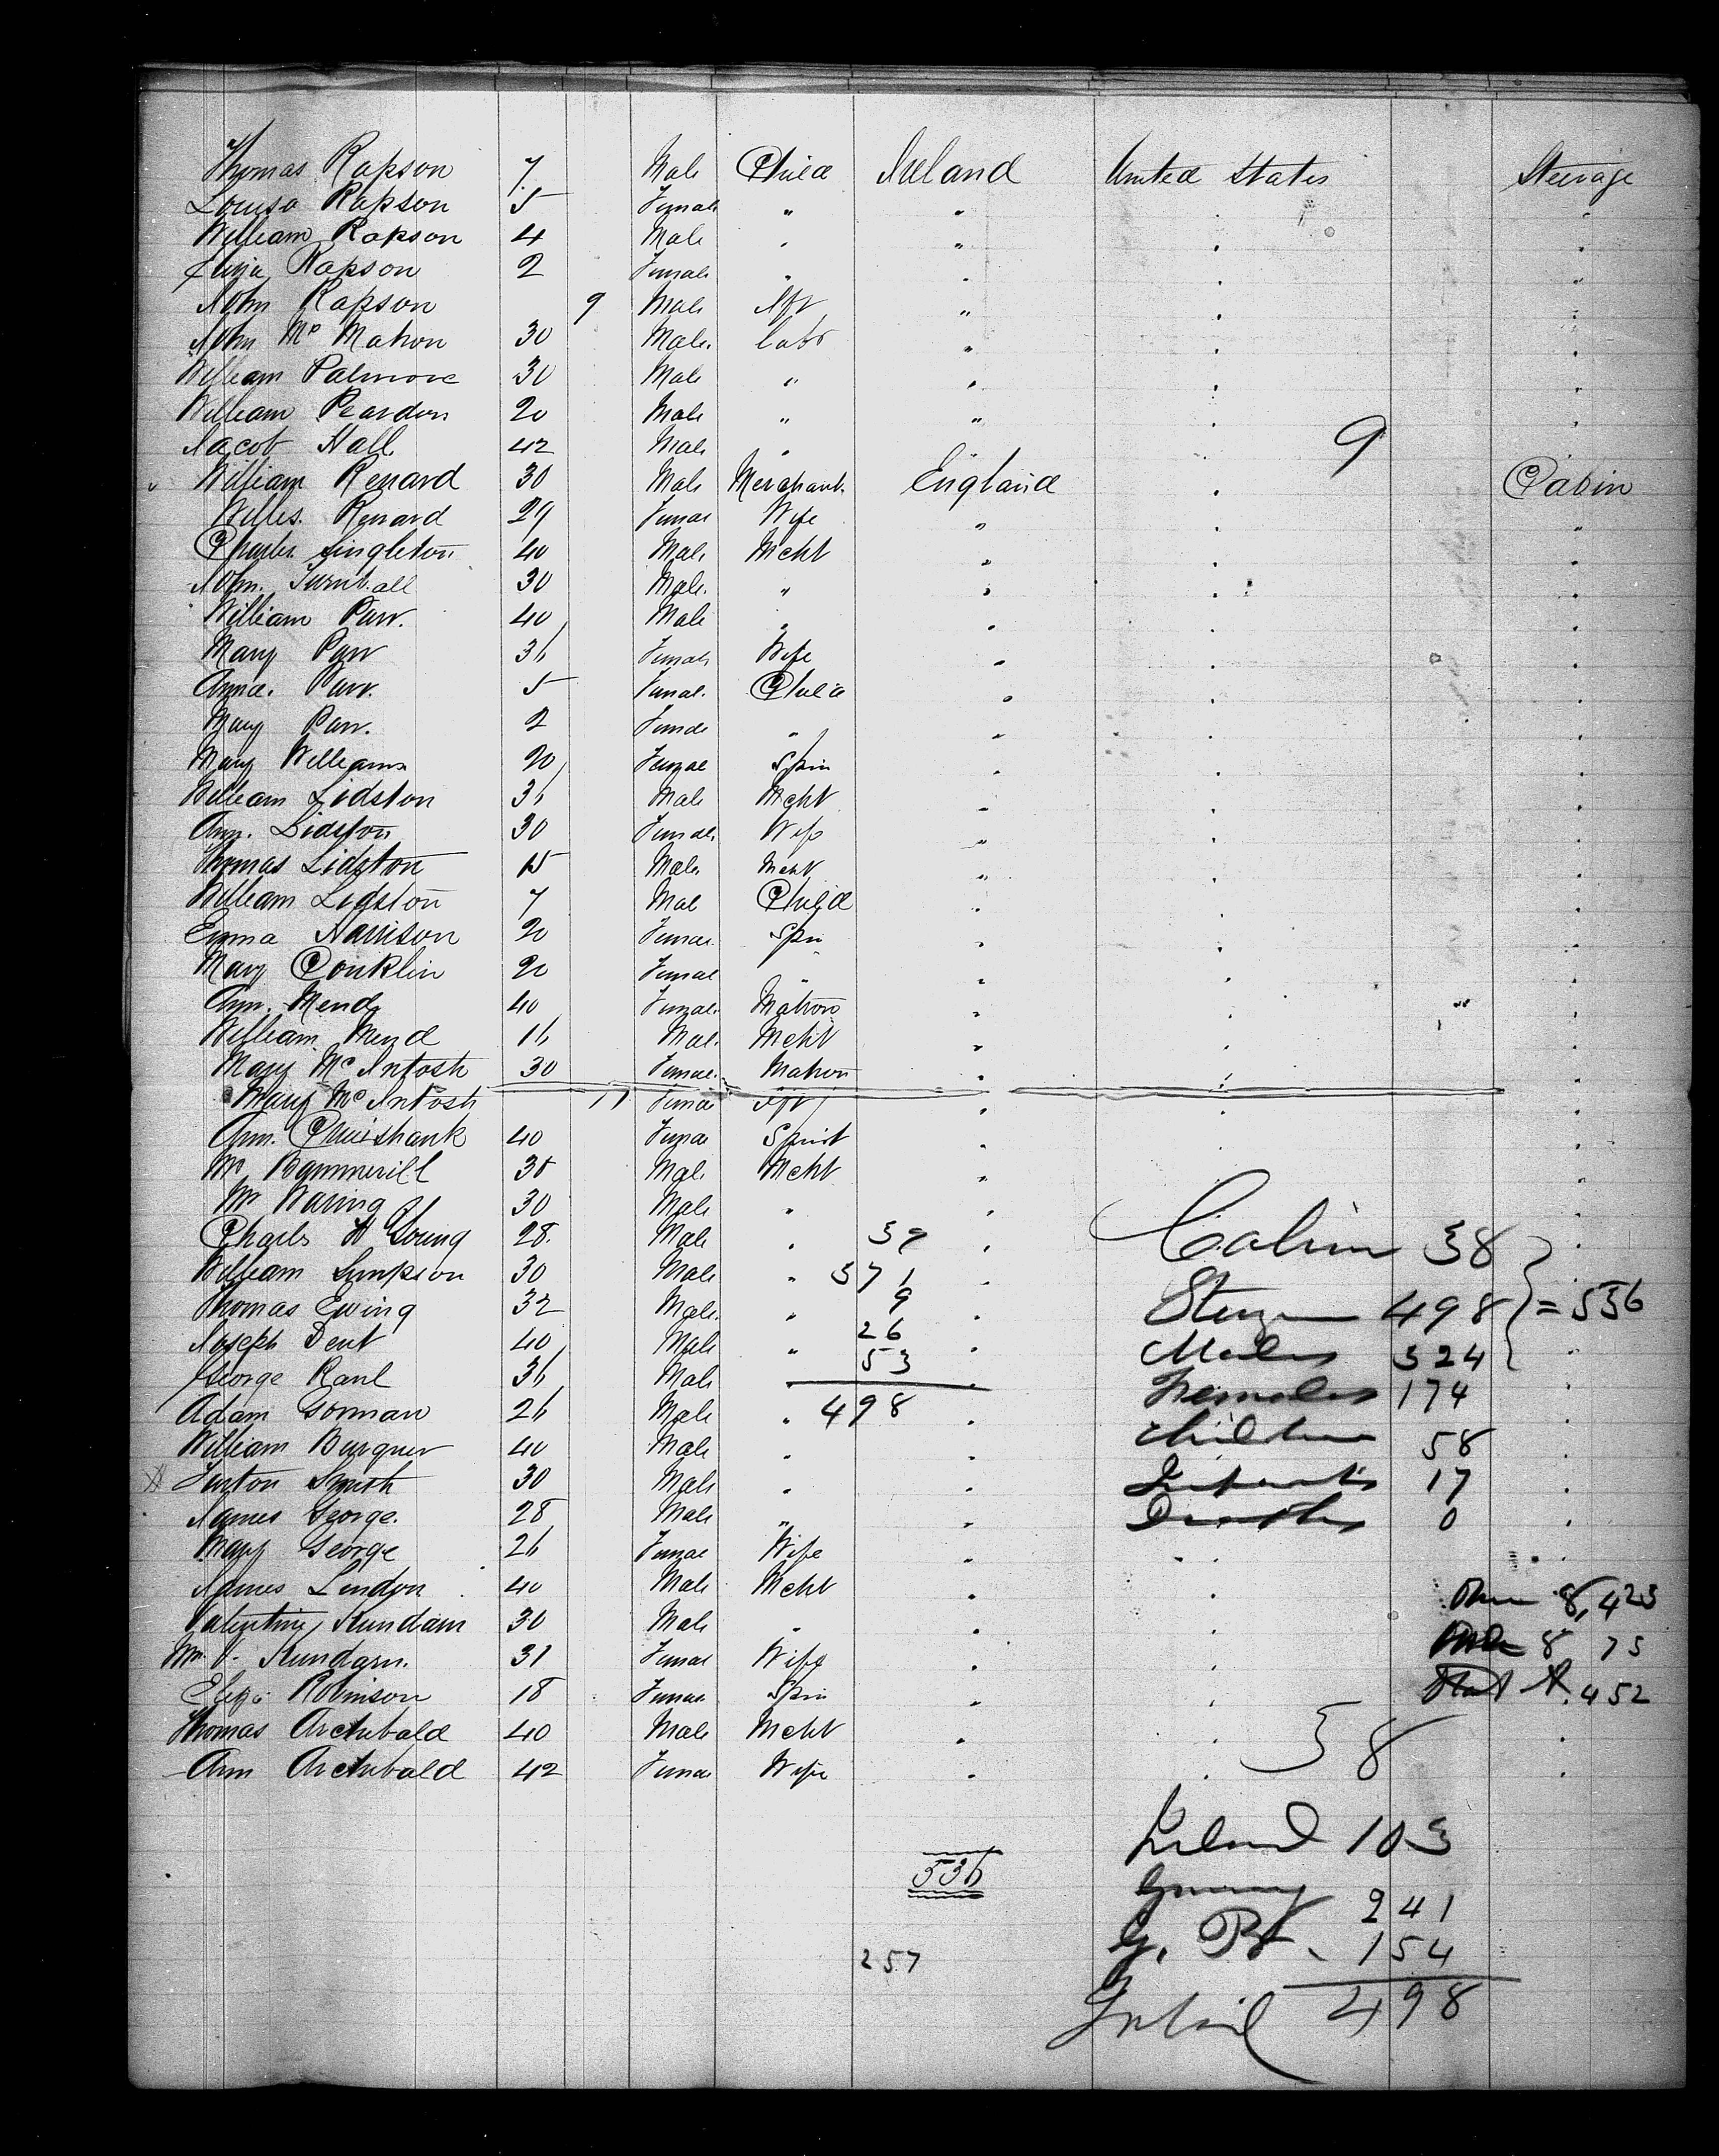 Thomas Rapson 7 Male Child Ireland United States Steerage
Louisa Rapson 5 Female " " " "
William Rapson 4 Male " " " "
Eliza Rapson 2 Female " " " "
John Rapson 9 Male Inft " " "
John Mc Mahon 30 Male Labr " " "
William Palmore 30 Male " " " "
William Reardon 20 Male " " " "
Jacob Hall 42 Male " " " 9 "
William Renard 30 Male Merchant England " Cabin
Willes. Renard 29 Female Wife " " "
Charles Singleton 40 Male Mcht " " "
John Turnball 30 Male " " " "
William Parr. 40 Male " " " "
Mary Parr 36 Female Wife " " "
Anna. Parr. 5 Female Child " " "
Mary Parr. 2 Female " " " "
Mary Williams 20 Female Spin " " "
William Lidston 36 Male Mcht " " "
Ann. Lidston 30 Female Wife " " "
Thomas Lidston 15 Male Mcht " " "
William Lidston 7 Male Child " " "
Emma Harrison 20 Female Spin " " "
Mary Conklin 20 Female " " " "
Ann. Mend 40 Female Matron " " "
William Mend 16 Male Mcht " " "
Mary Mc Intosh 30 Female Matron " " "
Mary Mc Intosh 11 Female Inft " " "
Ann. Cruishank 40 Female Spinst " " "
Mr Bammerill 35 Male Mcht " " "
Mr Waring 30 Male " " "
Charles H Young 28. Male " 39 " Cabin 38
William Simpson 30 Male " 371 "
Thomas Ewing 32 Male " 9 " 498 = 536
Joseph Dent 40 Male " 26 " Males 324
George Rank 36 Male " 53 " Females 174
Adam Gorman 26 Male " 498 " Children 58
William Burguer 40 Male " " "
Smith 30 Male " " Infants 17
James George. 28 Male " " Deaths 0
Mary George 26 Female Wife " " "
James Lindon 40 Male Mcht " " 8,423
Valentine 30 Male " " " 8 75
Mrs V. 31 Female Wife " " 452
Eliza Robinson 18 Female Spin " "
Thomas Archibald 40 Male Mcht " " 38
Ann Archibald 42 Female Wife " " "
Ireland 103
536
Germany 241
G. Bt. 154
257
498